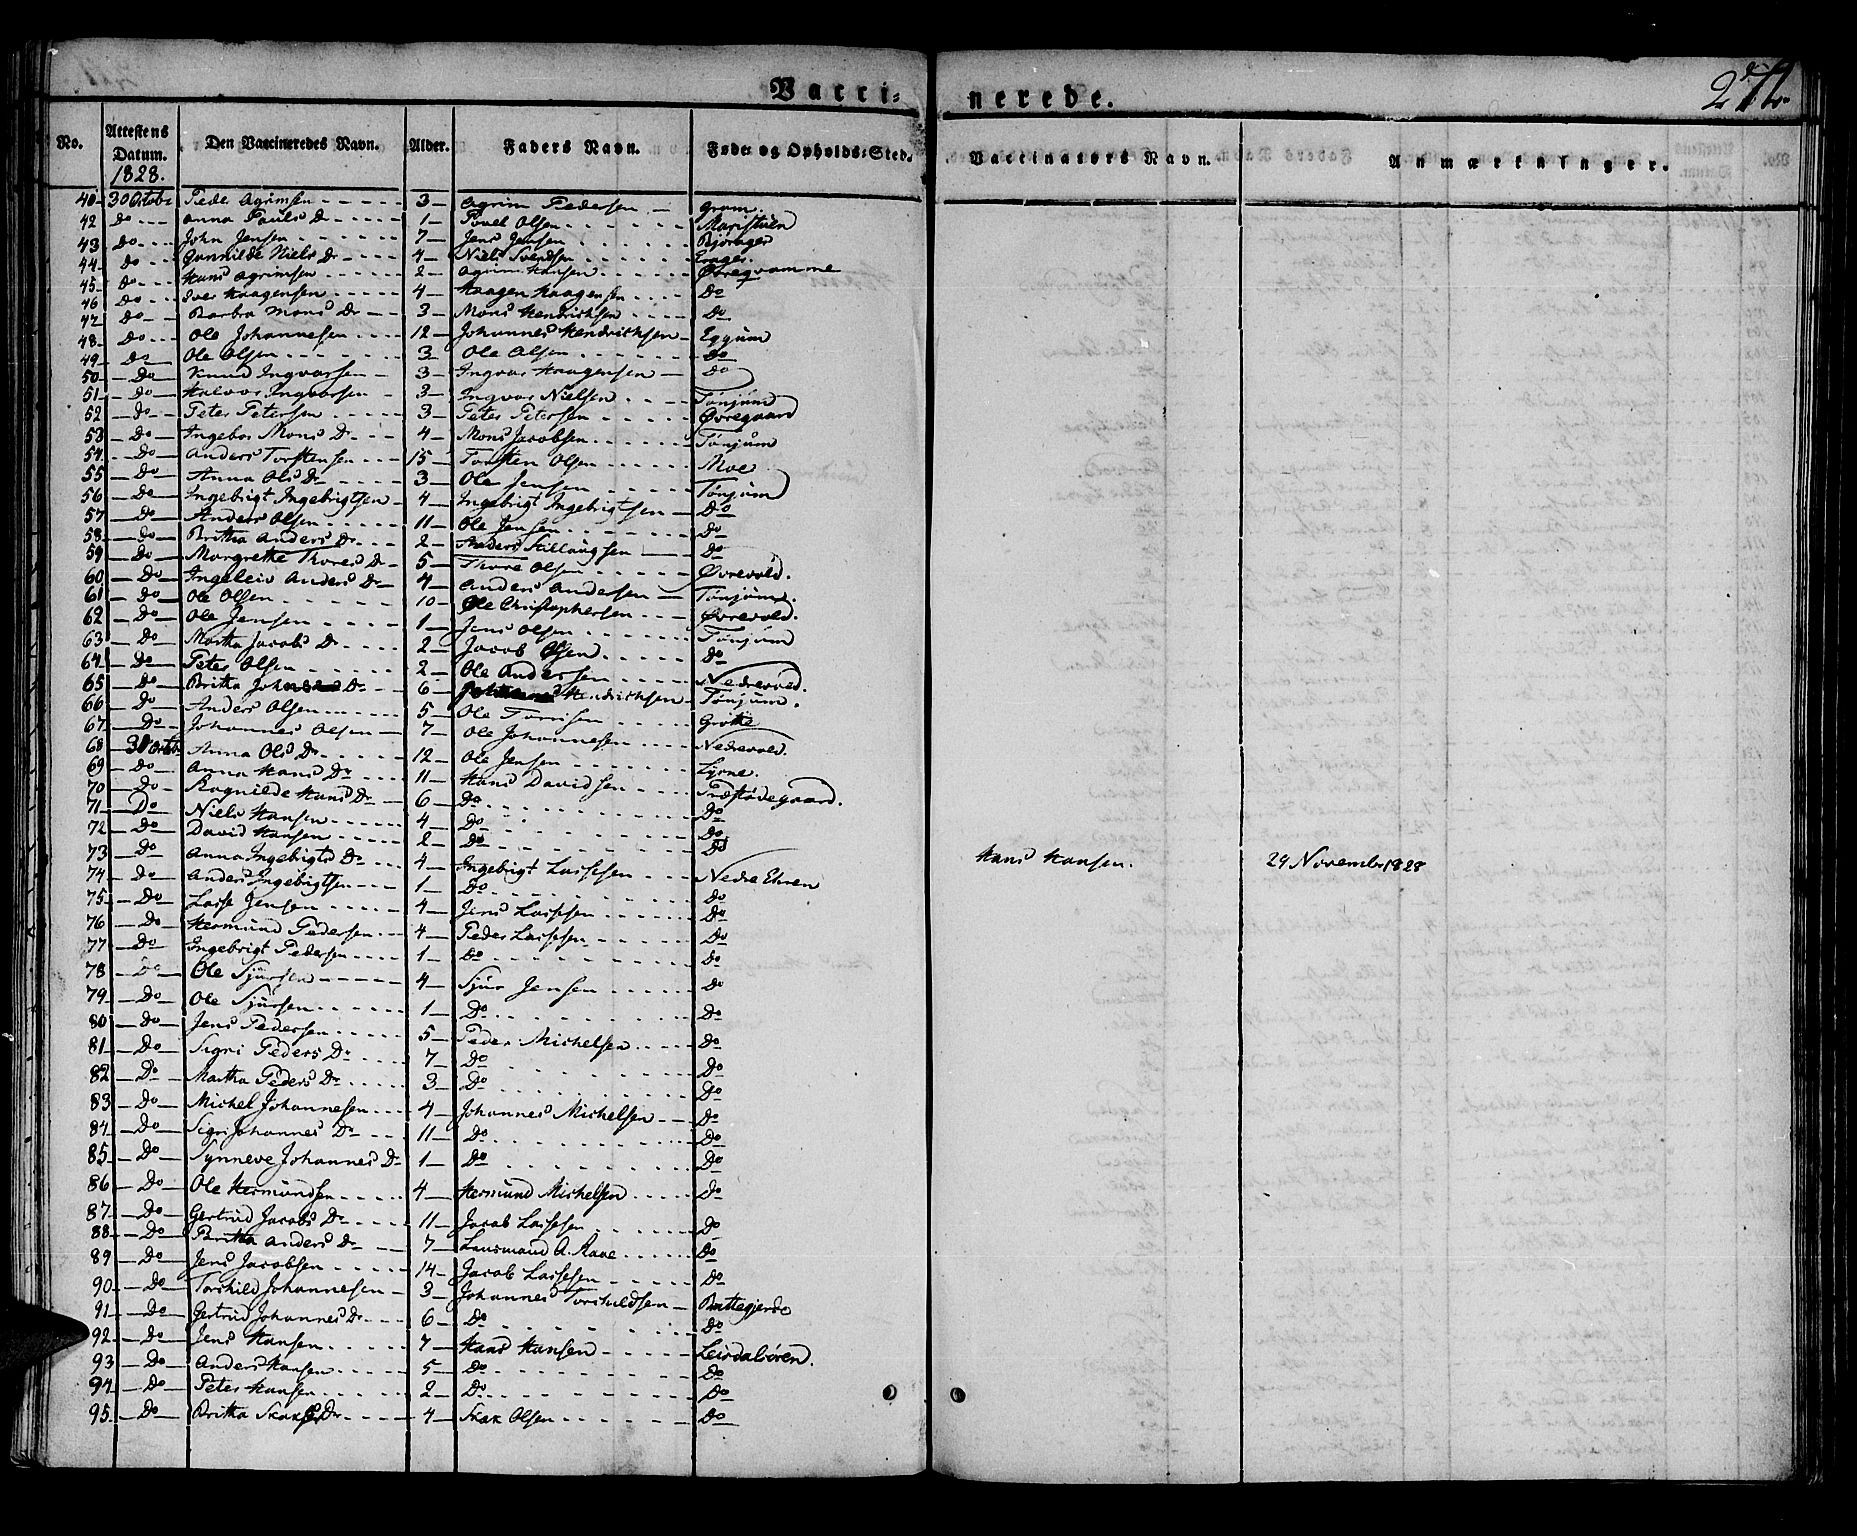 Vacci- nerede.
No. Attestens Datum. 1828. Den Vaccineredes Navn. Alder. Faders Navn. Føde- og Opholds-Sted. Vaccinators Navn. Anmærkninger.
40 30 Octobr Peder Agrimsen 3 Agrim Pedersen Gram.
42 Do Anna Pouls Dr 1 Povel Olsen Maristuen
43 Do John Jensen 7 Jens Jensen Björager
44 Do Gunnilde Niels Dr 4 Niels Svendsen
45 Do Hans Agrimsen 2 Agrim Hansen Øvreqvamme
46 Do Iver Haagensen 4 Haagen Haagensen Do
47 Do Barbra Mons Dr 3 Mons Hendrichsen Do
48 Do Ole Johannesen 12 Johannes Hendrichsen Eggum
49 Do Ole Olsen 3 Ole Olsen Do
50 Do Knud Ingvarsen 3 Ingvar Haagensen Do
51 Do Halvor Ingvorsen 3 Ingvor Nielsen Tönjum
52 Do Peter Petersen 3 Peter Petersen Øvregaard
53 Do Ingebor Mons Dr 4 Mons Jacobsen Tönjum
54 Do Anders Torstensen 15 Torsten Olsen Moe
55 Do Anna Ols Dr 3 Ole Jensen Tönjum
56 Do Ingebrigt Ingebrigtsen 4 Ingebrigt Ingebrigtsen Do
57 Do Anders Olsen 11 Ole Jensen Do
58 Do Britha Anders Dr 2 Anders Do
59 Do Margrethe Thores Dr 5 Thore Olsen Øvrevold.
60 Do Ingeleiv Anders Dr 4 Anders Andersen Tönjum.
61 Do Ole Olsen 10 Ole Christophersen Øvrevold.
62 Do Ole Jensen 1 Jens Olsen Tönjum
63 Do Martha Jacobs Dr 2 Jacob Olsen Do
64 Do Peter Olsen 2 Ole Andersen Nedrevold.
65 Do Britha Dr 6 Hendrichsen Tönjum.
66 Do Anders Olsen 5 Ole Torrisen Gröthe
67 Do Johannes Olsen 7 Ole Johannesen Nedrevold.
68 31 Octbr Anna Ols Dr 12 Ole Jensen Lysne.
69 Do Anna Hans Dr 11 Hans Davidsen Prestödegaard.
70 Do Ragnilde Hans Dr 6 Do Do
71 Do Niels Hansen 4 Do Do
72 Do David Hansen 2 Do Do
73 Do Anna Ingebrigts Dr 4 Ingebrigt Lassesen Nedre Ehren Hans Hansen. 29 November 1828
74 Do Anders Ingebrigtsen 1 Do Do
75 Do Lasse Jensen 4 Jens Lassesen Do
76 Do Hermund Pedersen 4 Peder Lassesen Do
77 Do Ingebrigt Pedersen 1 Do Do
78 Do Ole Sjursen 4 Sjur Jensen Do
79 Do Ole Sjursen 1 Do Do
80 Do Jens Pedersen 5 Peder Michelsen Do
81 Do Sigri Peders Dr 7 Do Do
82 Do Martha Peders Dr 3 Do Do
83 Do Michel Johannesen 4 Johannes Michelsen Do
84 Do Sigri Johannes Dr 11 Do Do
85 Do Synneve Johannes Dr 1 Do Do
86 Do Ole Hermundsen 4 Hermund Michelsen Do
87 Do Gertrud Jacobs Dr 11 Jacob Lassesen Do
88 Do Britha Anders Dr 7 Lensmand A. Raae Do
89 Do Jens Jacobsen 14 Jacob Lassesen Do
90 Do Torchild Johannesen 3 Johannes Torchildsen Buttegjerde
91 Do Gertrud Johannes Dr 6 Do Do
92 Do Jens Hansen 7 Hans Hansen Leirdalsören.
93 Do Anders Hansen 5 Do Do
94 Do Peter Hansen 2 Do Do
95 Do Britha Dr 4 Skak Olsen Do